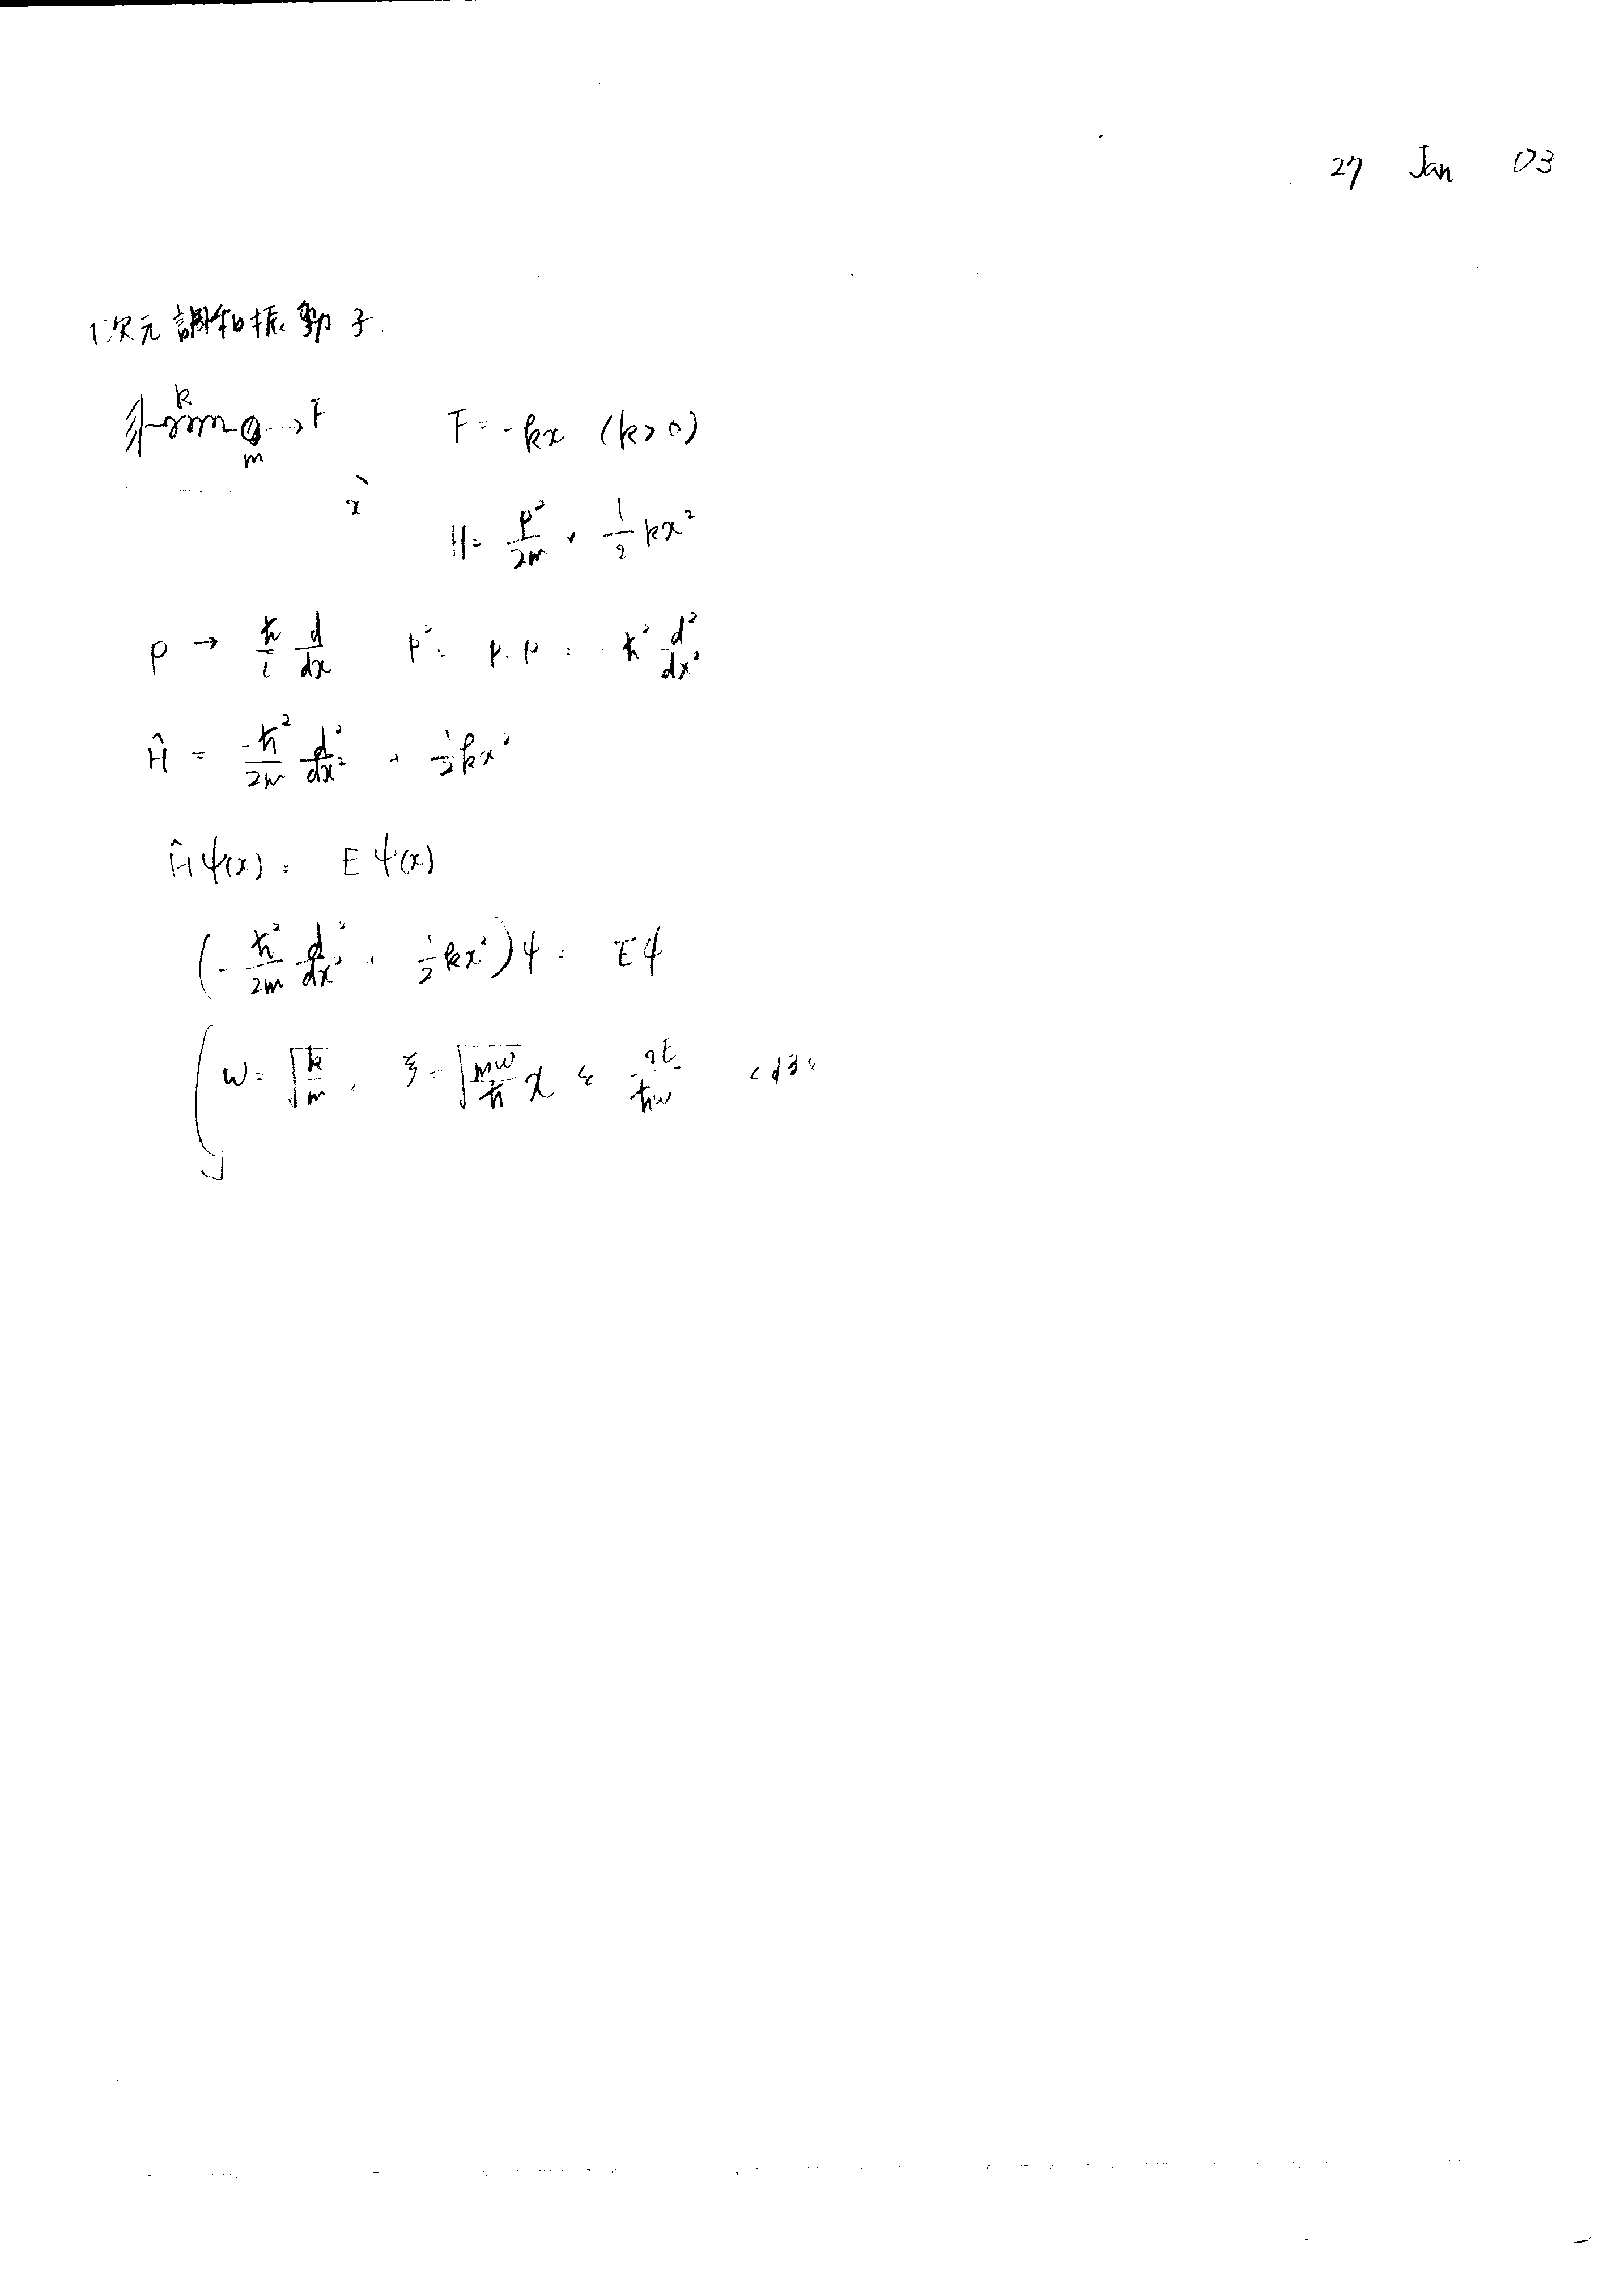 27 Jan 03
1次元調和振動子
k
F
m
x
F = -kx (k>0)
H = p²/2m + 1/2 kx²
p → ħ/i d/dx p² = p·p = -ħ² d²/dx²
Ĥ = -ħ²/2m d²/dx² + 1/2 kx²
Ĥψ(x) = Eψ(x)
(-ħ²/2m d²/dx² + 1/2 kx²)ψ = Eψ
ω = √(k/m), ξ = √(mω/ħ) x